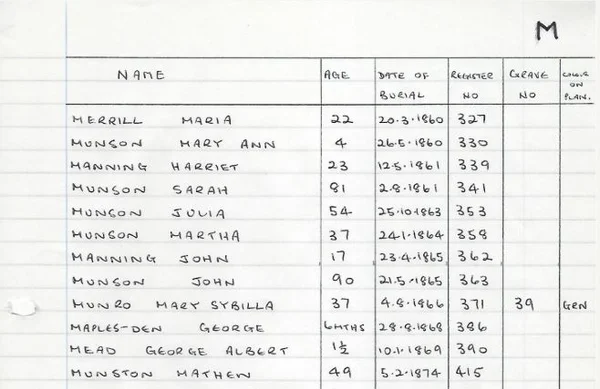 M
NAME AGE DATE OF BURIAL REGISTER NO GRAVE NO COLOR ON PLAN.
MERRILL MARIA 22 20.3.1860 327
MUNSON MARY ANN 4 26.5.1860 330
MANNING HARRIET 23 12.5.1861 339
MUNSON SARAH 81 2.8.1861 341
MUNSON JULIA 54 25.10.1863 353
MUNSON MARTHA 37 24.1.1864 358
MANNING JOHN 17 23.4.1865 362
MUNSON JOHN 90 21.5.1865 363
MUNRO MARY SYBILLA 37 4.8.1866 371 39 GRN
MAPLES-DEN GEORGE 6MTHS 28.8.1868 386
MEAD GEORGE ALBERT 1½ 10.1.1869 390
MUNSTON MATHEW 49 5.2.1874 415